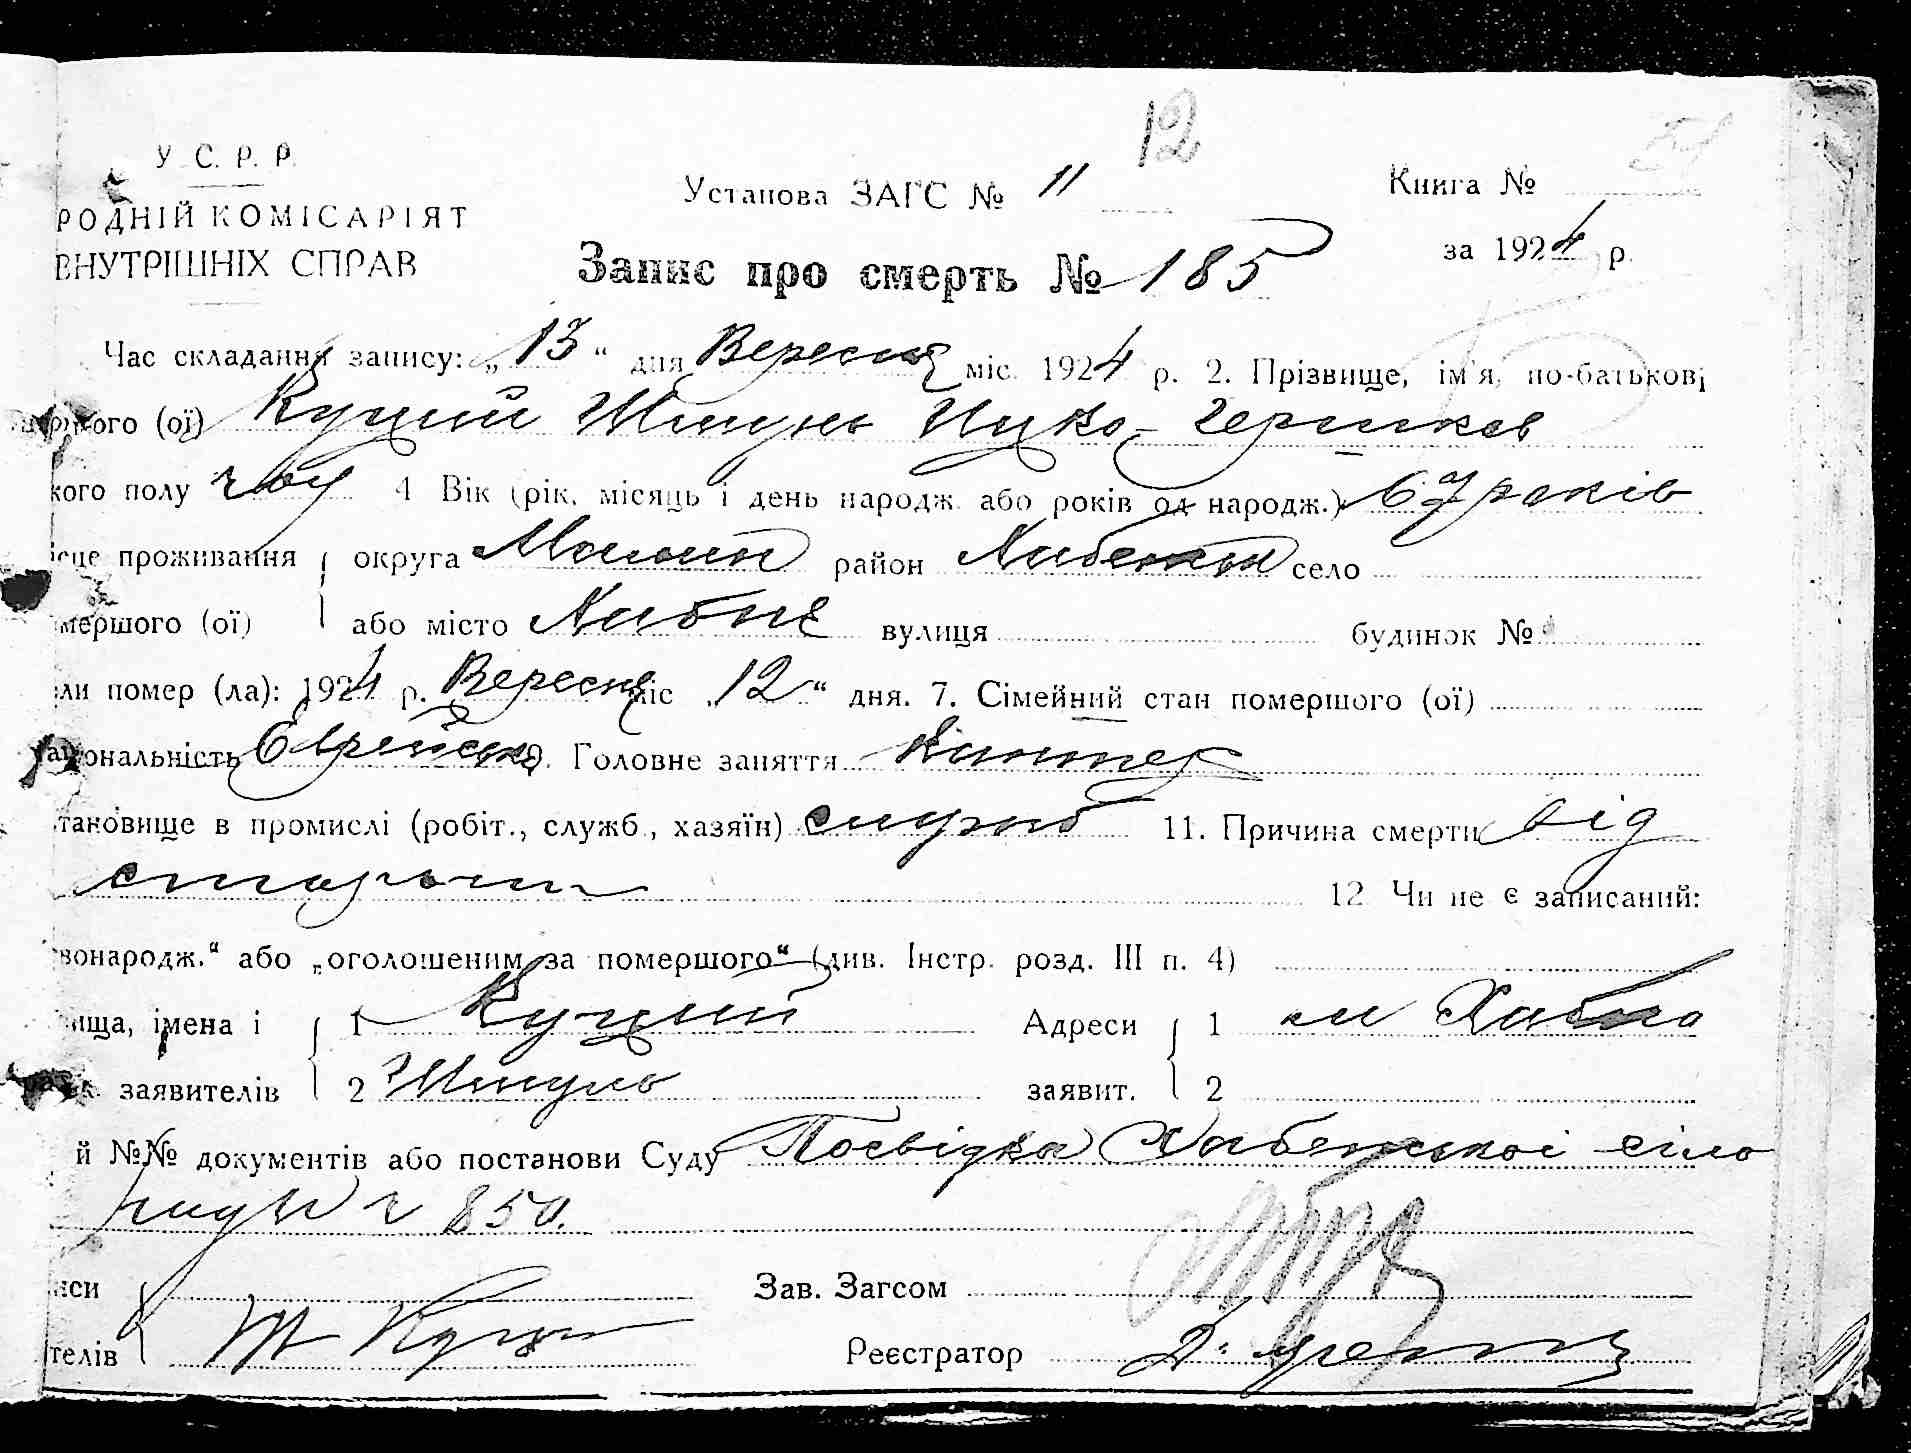 12
У. С. Р. Р.
РОДНІЙ КОМІСАРІЯТ
ВНУТРІШНІХ СПРАВ
Установа ЗАГС № 11
Книга №
за 1924 р.
Запис про смерть № 185
Час складання запису: „13“ дня Вересня міс. 1924 р. 2. Прізвище, ім'я, по-батькові
ого (ої) Куций Шмуль Ицко-Гершков
кого полу чол 4 Вік (рік, місяць і день народж. або років од народж.) 67 років
ісце проживання округа район село
мершого (ої) або місто Хабне вулиця будинок №
ли помер (ла): 1924 р. Вересня міс „12“ дня. 7. Сімейний стан помершого (ої)
ональність Єврейськ 9. Головне заняття
тановище в промислі (робіт., служб., хазяїн) служб 11. Причина смерти від
старости
12 Чи не є записаний:
вонародж.“ або „оголошеним за помершого“ (див. Інстр. розд. III п. 4)
ища, імена і 1 Куций Адреси 1 м Хабно
заявителів 2 Шмуль заявит. 2
й №№ документів або постанови Суду Посвідка Хабенської сіль
ради № 850.
иси Зав. Загсом
телів Реєстратор